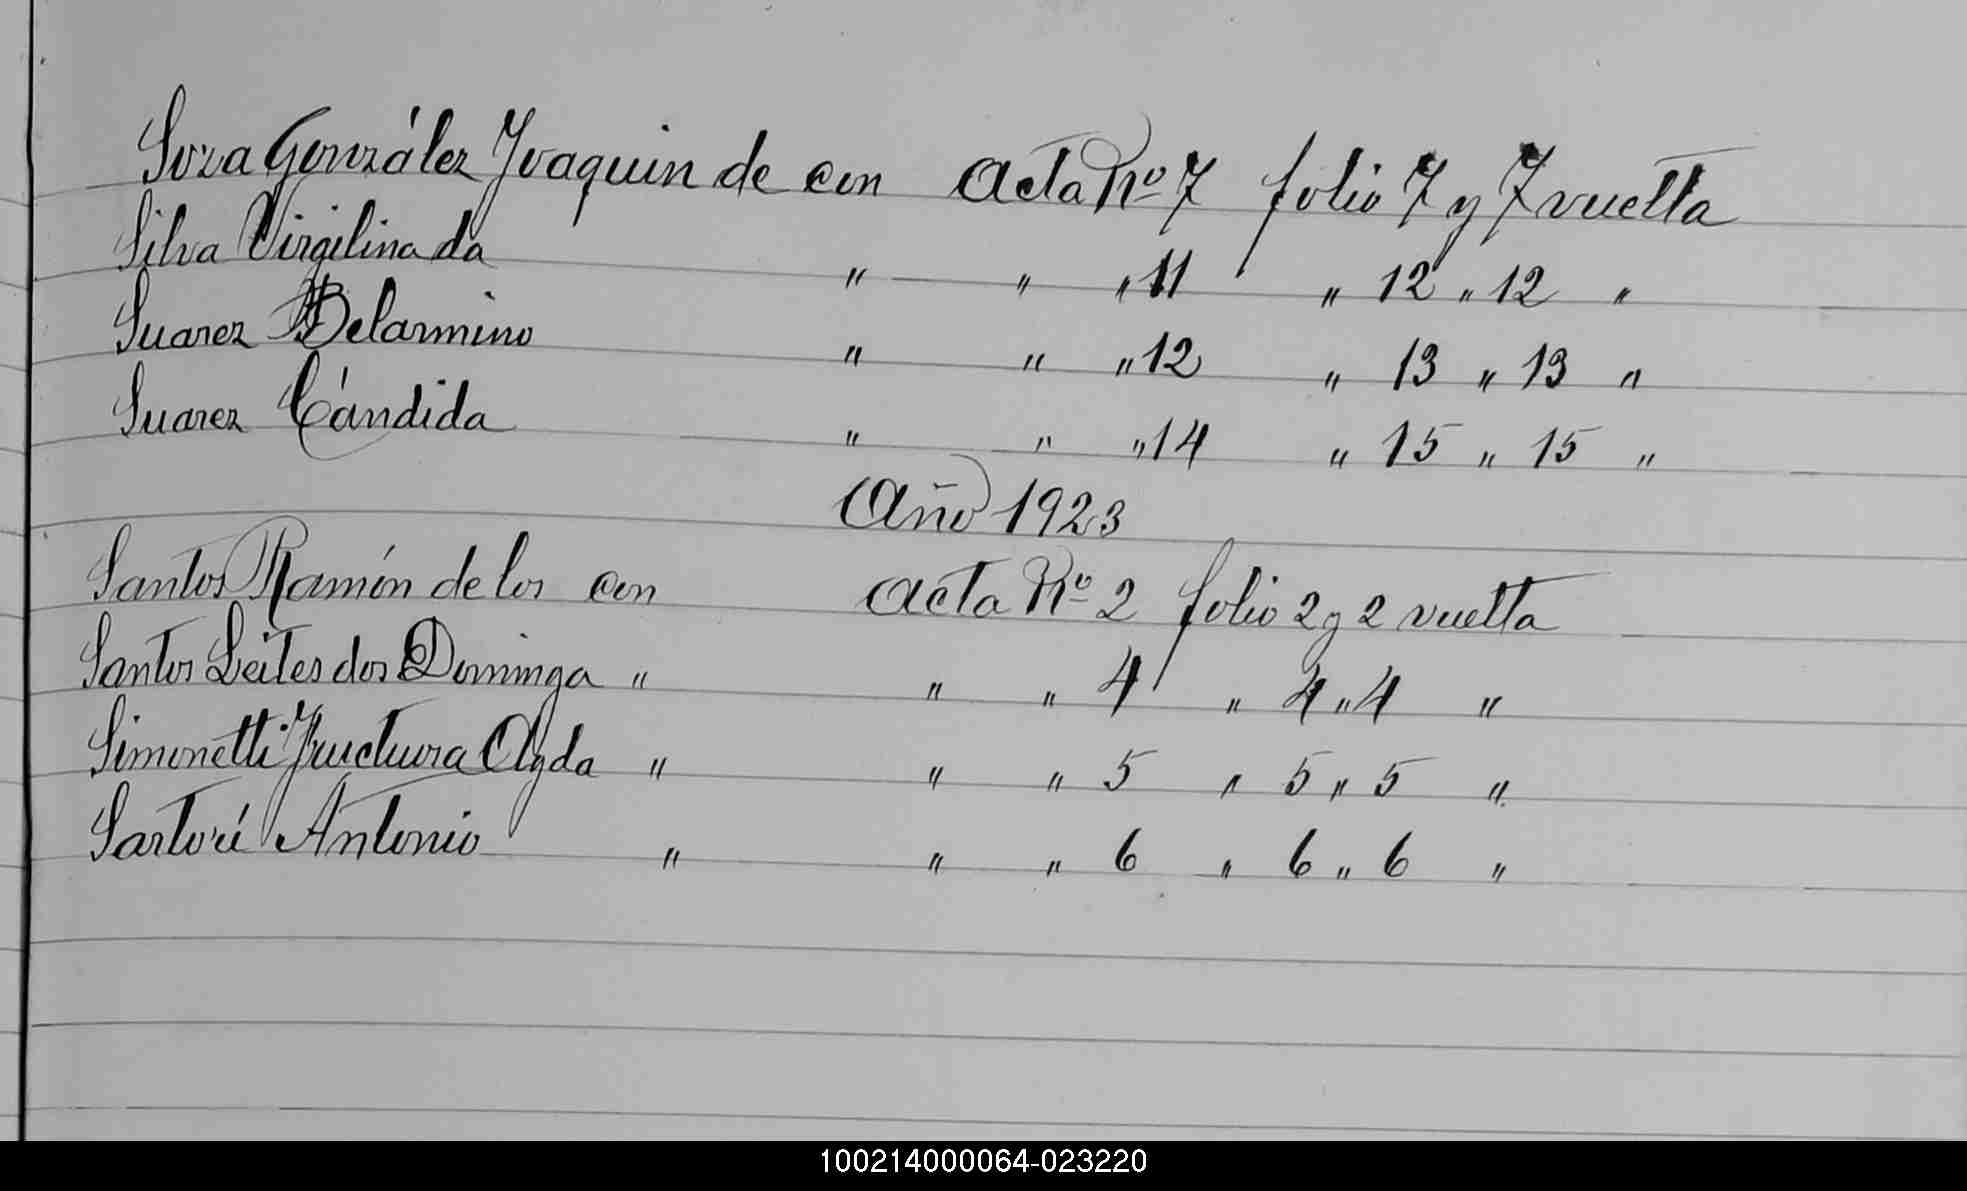 Soza González Joaquin de con Acta No 7 folio 7 y 7 vuelta
Silva Virgilina da " " " 11 " 12 " 12 "
Suarez Belarmino " " " 12 " 13 " 13 "
Suarez Cándida " " " 14 " 15 " 15 "
Año 1923
Santos Ramón de los con Acta No 2 folio 2 y 2 vuelta
Santos Leites dos Dominga " " " 4 " 4 " 4 "
Simonetti Fructuosa Ayda " " " 5 " 5 " 5 "
Sartori Antonio " " " 6 " 6 " 6 "
100214000064-023220